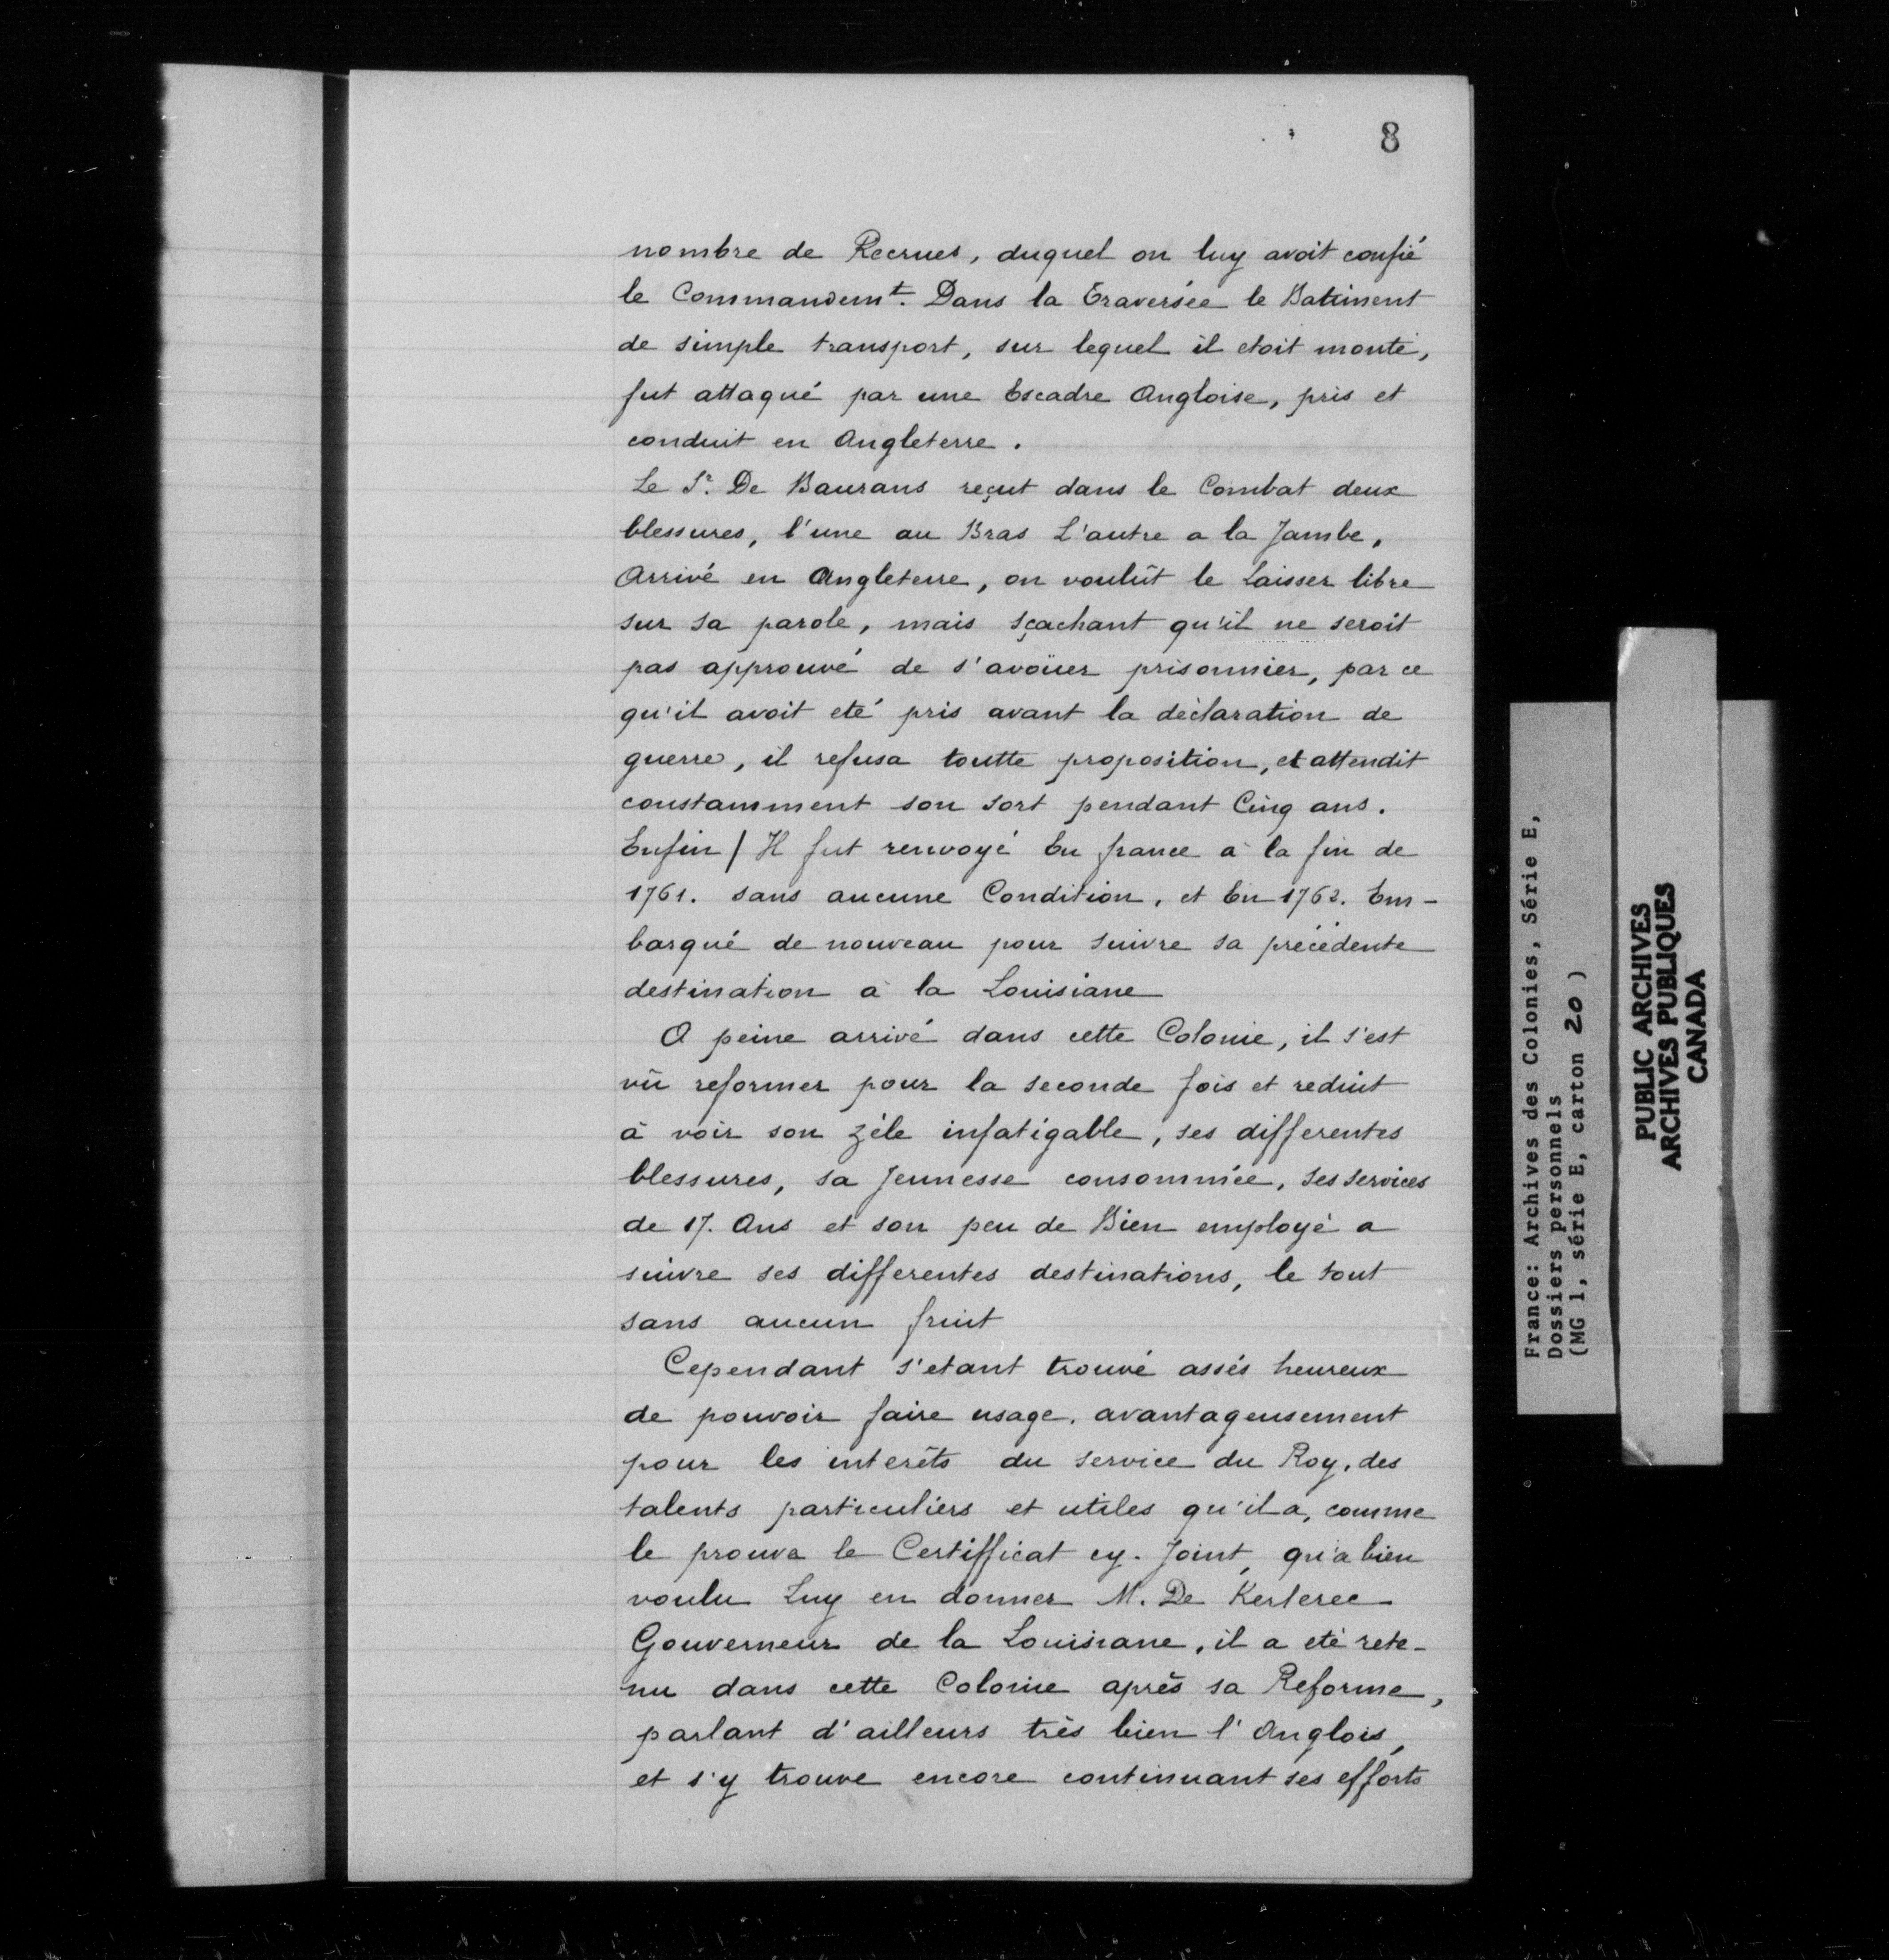 8
nombre de Recrues, duquel on luy avoit confié
le Commandemt. Dans la Traversée le Batiment
de simple transport, sur lequel il etoit monté,
fut attaqué par une Escadre Angloise, pris et
conduit en Angleterre.
Le Sr. De Baurans reçut dans le Combat deux
blessures, l'une au Bras L'autre a la Jambe,
Arrivé en Angleterre, on voulût le Laisser libre
sur sa parole, mais sçachant qu'il ne seroit
pas approuvé de s'avoüer prisonnier, par ce
qu'il avoit eté pris avant la déclaration de
guerre, il refusa toutte proposition, et attendit
constamment son sort pendant Cinq ans.
Enfin / Il fut renvoyé En france à la fin de
1761. sans aucune Condition, et En 1762. Em-
barqué de nouveau pour suivre sa précédente
destination à la Louisiane
A peine arrivé dans cette Colonie, il s'est
vû reformer pour la seconde fois et reduit
à voir son zèle infatigable, ses differentes
blessures, sa Jeunesse consommée, ses services
de 17. Ans et son peu de Bien employé a
suivre ses differentes destinations, le tout
sans aucun fruit
Cependant s'etant trouvé assés heureux
de pouvoir faire usage, avantageusement
pour les interêts du service du Roy, des
talents particuliers et utiles qu'il a, comme
le prouve le Certifficat cy. Joint, qu'a bien
voulu Luy en donner M. De Kerlerec
Gouverneur de la Louisiane, il a eté rete-
nu dans cette Colonie après sa Reforme,
parlant d'ailleurs très bien l'Anglois,
et s'y trouve encore continuant ses efforts
France: Archives des Colonies, Série E,
Dossiers personnels
(MG 1, série E, carton 20 )
PUBLIC ARCHIVES
ARCHIVES PUBLIQUES
CANADA